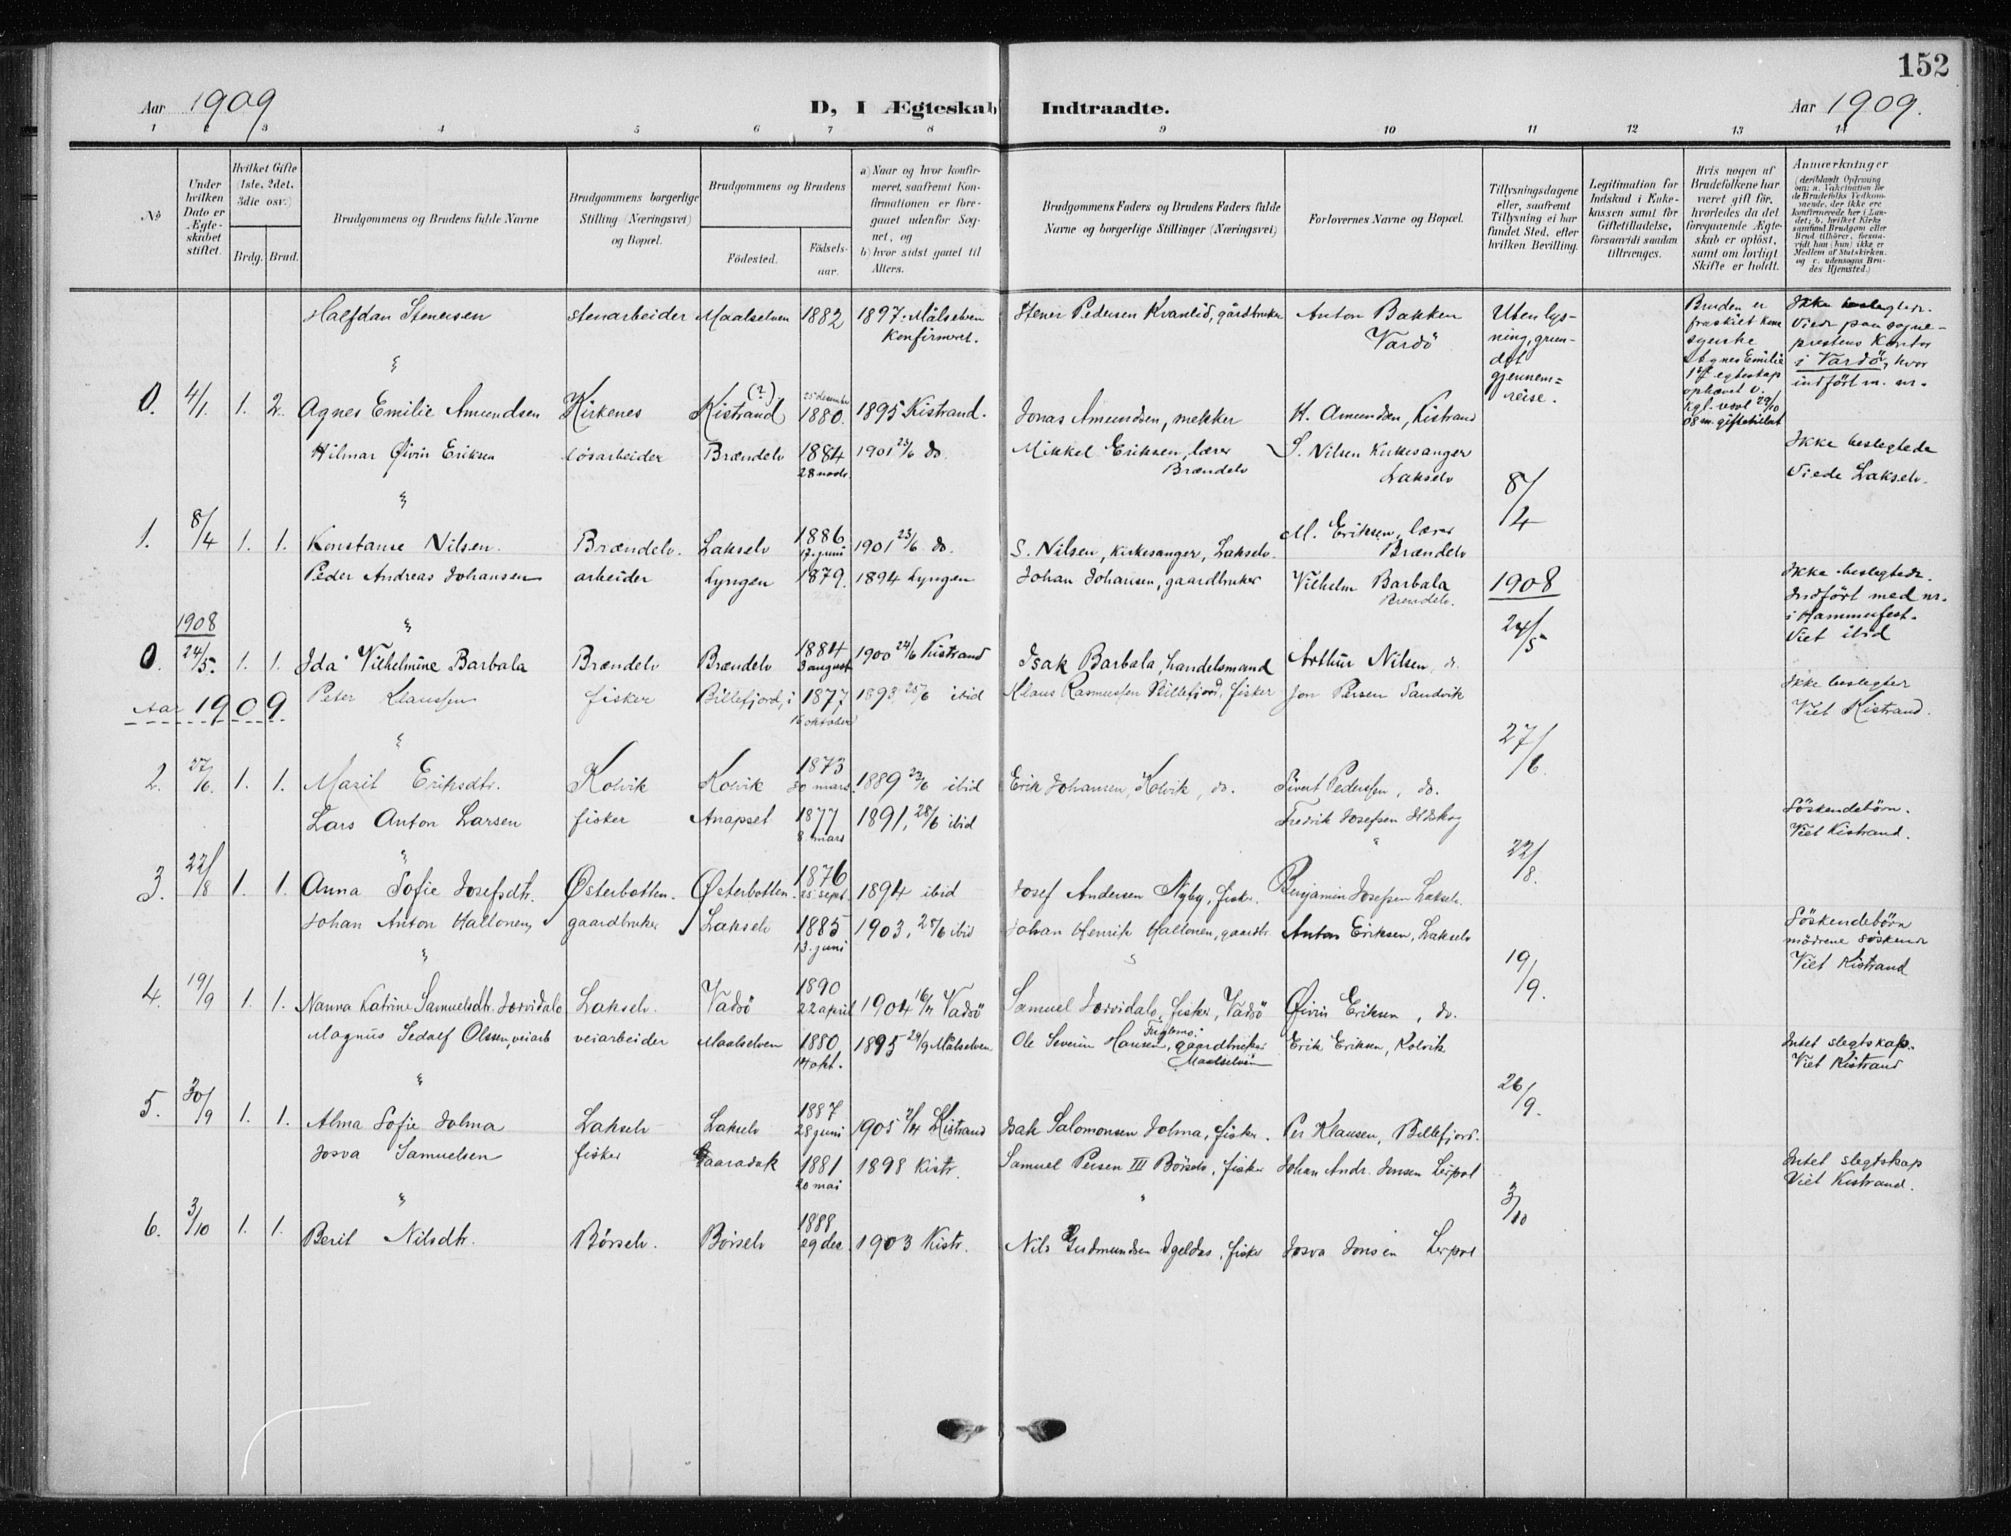 152
Aar 1909
D, I Ægteskab Indtraadte.
Aar 1909.
1 2 3 4 5 6 7 8 9 10 11 12 13 14
No
Under hvilken Dato er Ægteskabet stiftet.
Hvilket Gifte (1ste, 2det, 3die osv.)
Brdg. Brud.
Brudgommens og Brudens fulde Navne
Brudgommens borgerlige Stilling (Næringsvei) og Bopæl.
Brudgommens og Brudens
Födested.
Födsels-aar.
a) Naar og hvor konfirmeret, saafremt Konfirmationen er foregaaet udenfor Sognet, og
b) hvor sidst gaaet til Alters.
Brudgommens Faders og Brudens Faders fulde Navne og borgerlige Stillinger (Næringsvei)
Forlovernes Navne og Bopæl.
Tillysningsdagene eller, saafremt Tillysning ei har fundet Sted, efter hvilken Bevilling.
Legitimation for Indskud i Enkekassen samt for Giftetilladelse, forsaavidt saadan tiltrænges.
Hvis nogen af Brudefolkene har været gift før, hvorledes da det foregaaende Ægteskab er opløst, samt om lovligt Skifte er holdt.
Anmærkninger
(deriblandt Oplysning om: a. Vakcination for de Brudefolks Vedkommende, der ikke ere konfirmerede her i Landet; b. hvilket Kirkesamfund Brudgom eller Brud tilhører, forsaavidt han (hun) ikke er Medlem af Statskirken, og c. udensogns Brudes Hjemsted.)
Halfdan Stenersen stenarbeider Maalselven 1882 1897. Målselven konfirmeret. Stener Pedersen Kvanlid, gårdbruker Anton Bakken Vardö
Uten lysning, grundet gjennemreise.
Bruden er fraskilt
Agnes Emilie
1ste egteskap ophævet v. kgl. resol 29/10 08
Ikke beslegtede. Viede paa sogneprestens Kontor i Vardö, hvor indfört m. nr.
"
0. 4/1. 1. 2. Agnes Emilie Amundsen Kirkenes Kistrand (?) 25 desember 1880. 1895 Kistrand. Jonas Amundsen, H. Amundsen, Kistrand
Hilmar Øivin Eriksen lösarbeider Brændelv 1884 28 novbr. 1901 23/6 do. Mikkel Eriksen, lærer Brændelv S. Nilsen Kirkesanger Lakselv
8/4
Ikke beslegtede
Viede Lakselv.
"
1. 8/4 1. 1. Konstanse Nilsen. Brændelv. Lakselv 1886 17. juni 1901 23/6 do. S. Nilsen, kirkesanger, Lakselv. M. Eriksen, lærer Brændelv
Peder Andreas Johansen arbeider Lyngen 1879. 1894 Lyngen Johan Johansen, gaardbruker Vilhelm Barbala Brendelv.
1908
24/5
Ikke beslegtede.
Indfört med nr. i Hammerfest.
Viet ibid
1908
"
0. 24/5. 1. 1. Ida Vilhelmine Barbala Brændelv Brændelv 1884 3 august 1900 24/6 Kistrand Isak Barbala, handelsmand Arthur Nilsen, do.
Aar 1909
Peter Klaussen fisker Billefjord, i 1877 16 oktober 1893 25/6 ibid Klaus Rasmussen Billefjord, fisker Jon Persen Sandvik
27/6.
Ikke beslegtet
Viet Kistrand.
"
2. 27/6. 1. 1. Marit Eriksdtr. Kolvik Kolvik 1873 30 mars. 1889 23/6 ibid Erik Johansen, Kolvik, do. Sivert Pedersen, do.
Lars Anton Larsen fisker Anapset 1877 8. mars 1891, 28/6 ibid Fredrik Josefsen
22/8.
Söskendebörn.
Viet Kistrand.
"
3. 22/8 1. 1. Anna Sofie Josefsdtr. Østerbotten. Østerbotten. 1876 25 sept. 1894 ibid Josef Andersen Nyby, fisker. Benjamin Josefsen Lakselv.
Johan Anton Hallonen, gaardbruker Lakselv 1885 13. juni 1903, 28/6 ibid Johan Henrik Hallonen, gaardbr. Anton Eriksen, Lakselv
19/9.
Söskendebörn mödrene söskende
Viet Kistrand
"
4. 19/9 1. 1. Nanna Katrine Samuelsdtr. Jærvidalo Lakselv. Vadsö 1890 22 april 1904 16/4 Vadsö Samuel Jærvidalo, fisker, Vadsö Øivin Eriksen, do.
Magnus Sedolf Olsen, veiarb veiarbeider Maalselven 1880 14 okt. 1895 29/9 Målselven Ole Severin Hansen, Fuglemo gaardbruker Maalselven Erik Eriksen, Kolvik
26/9.
Intet slegtskap.
Viet Kistrand
"
5. 30/9 1. 1. Alma Sofie Jolma Lakselv Lakselv 1887 28 juni 1905 2/4 Kistrand Isak Salomonsen Jolma, fisker. Per Klausen, Billefjord.
Josva Samuelsen fisker Gaaradak 1881 20 mai 1898 Kistr. Samuel Persen III Börselv, fisker Johan Andr. Jensen Lerpol
3/10
Intet slegtskap
Viet Kistrand.
"
6. 3/10 1. 1. Berit Nilsdtr. Börselv. Börselv 1888 29 des. 1903 Kistr. Nils Gudmundsen Igeldas, fisker Josva Jonsen Lerpol